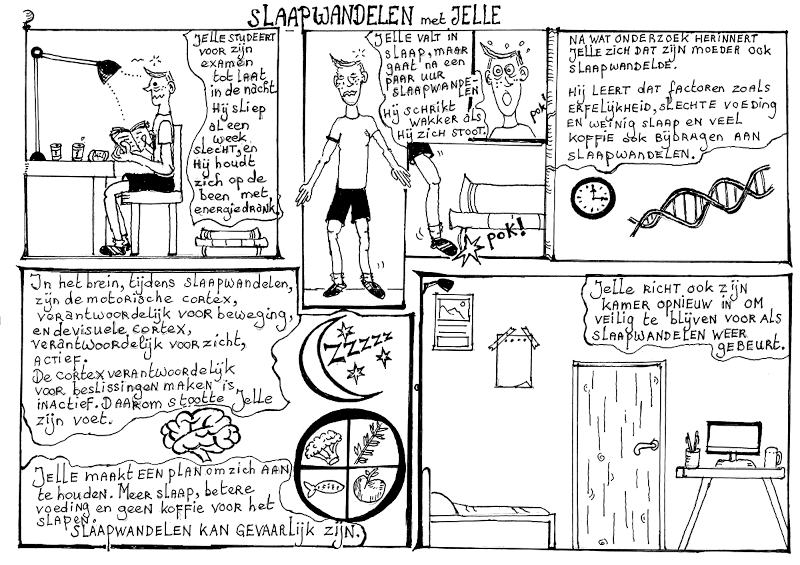 SLAAPWANDELEN met JELLE
JELLE STUDEERT
VOOR ZIJN
EXAMEN
tot LAAT
in de nacht.
Hij SLIEP
AL EEN
WEEK
SLECHT, EN
Hij HOUDT
ZICH OP DE
BEEN MET
ENERGIEDRANK.
JELLE VALT IN
SLAAP, MAAR
GAAT NA EEN
PAAR UUR
SLAAPWANDE-
LEN
Hij SCHRIKT
WAKKER ALS
Hij ZICH STOOT.
pok!
POK!
NA WAT ONDERZOEK HERINNERT
JELLE ZICH DAT ZIJN MOEDER OOK
SLAAPWANDELDE.
Hij LEERT DAT FACTOREN ZOALS
ERFELIJKHEID, SLECHTE VOEDING
EN WEINIG SLAAP EN VEEL
KOFFIE OOK BIJDRAGEN AAN
SLAAPWANDELEN.
In het brein, tijdens SLAAPWANDELEN,
zijn de motorische cortex,
verantwoordelijk voor beweging,
en de visuele cortex,
verantwoordelijk voor zicht,
ACTIEF.
De cortex verantwoordelijk
voor beslissingen maken is
inactief. DAArom stootte Jelle
zijn voet.
ZZZZZZ
Jelle maakt een plan om zich AAN
te houden. Meer slaap, betere
voeding en geen koffie voor het
slapen.
SLAAPWANDELEN KAN GEVAARLIJK ZIJN.
Jelle RICHT OOK ZIJN
KAMER OPNIEUW IN OM
VEILIG TE BLIJVEN VOOR ALS
SLAAPWANDELEN WEER
GEBEURT.